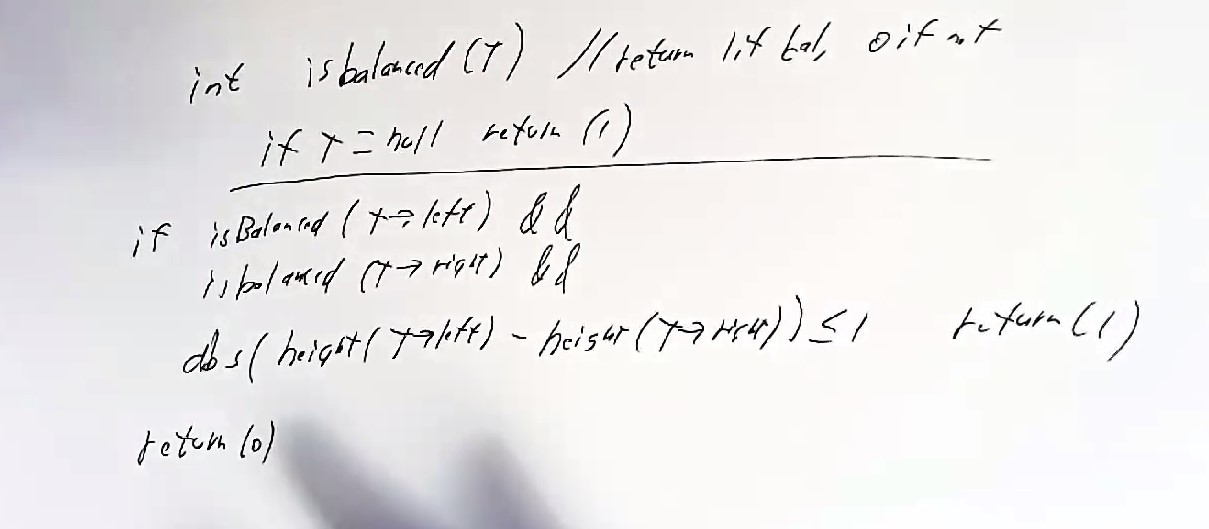 int isbalanced (T) // return 1 if bal, 0 if not
if T = null return (1)
if isBalanced (T → left) &&
isbalanced (T → right) &&
abs( height( T → left) - height (T → right)) ≤ 1 return (1)
return (0)